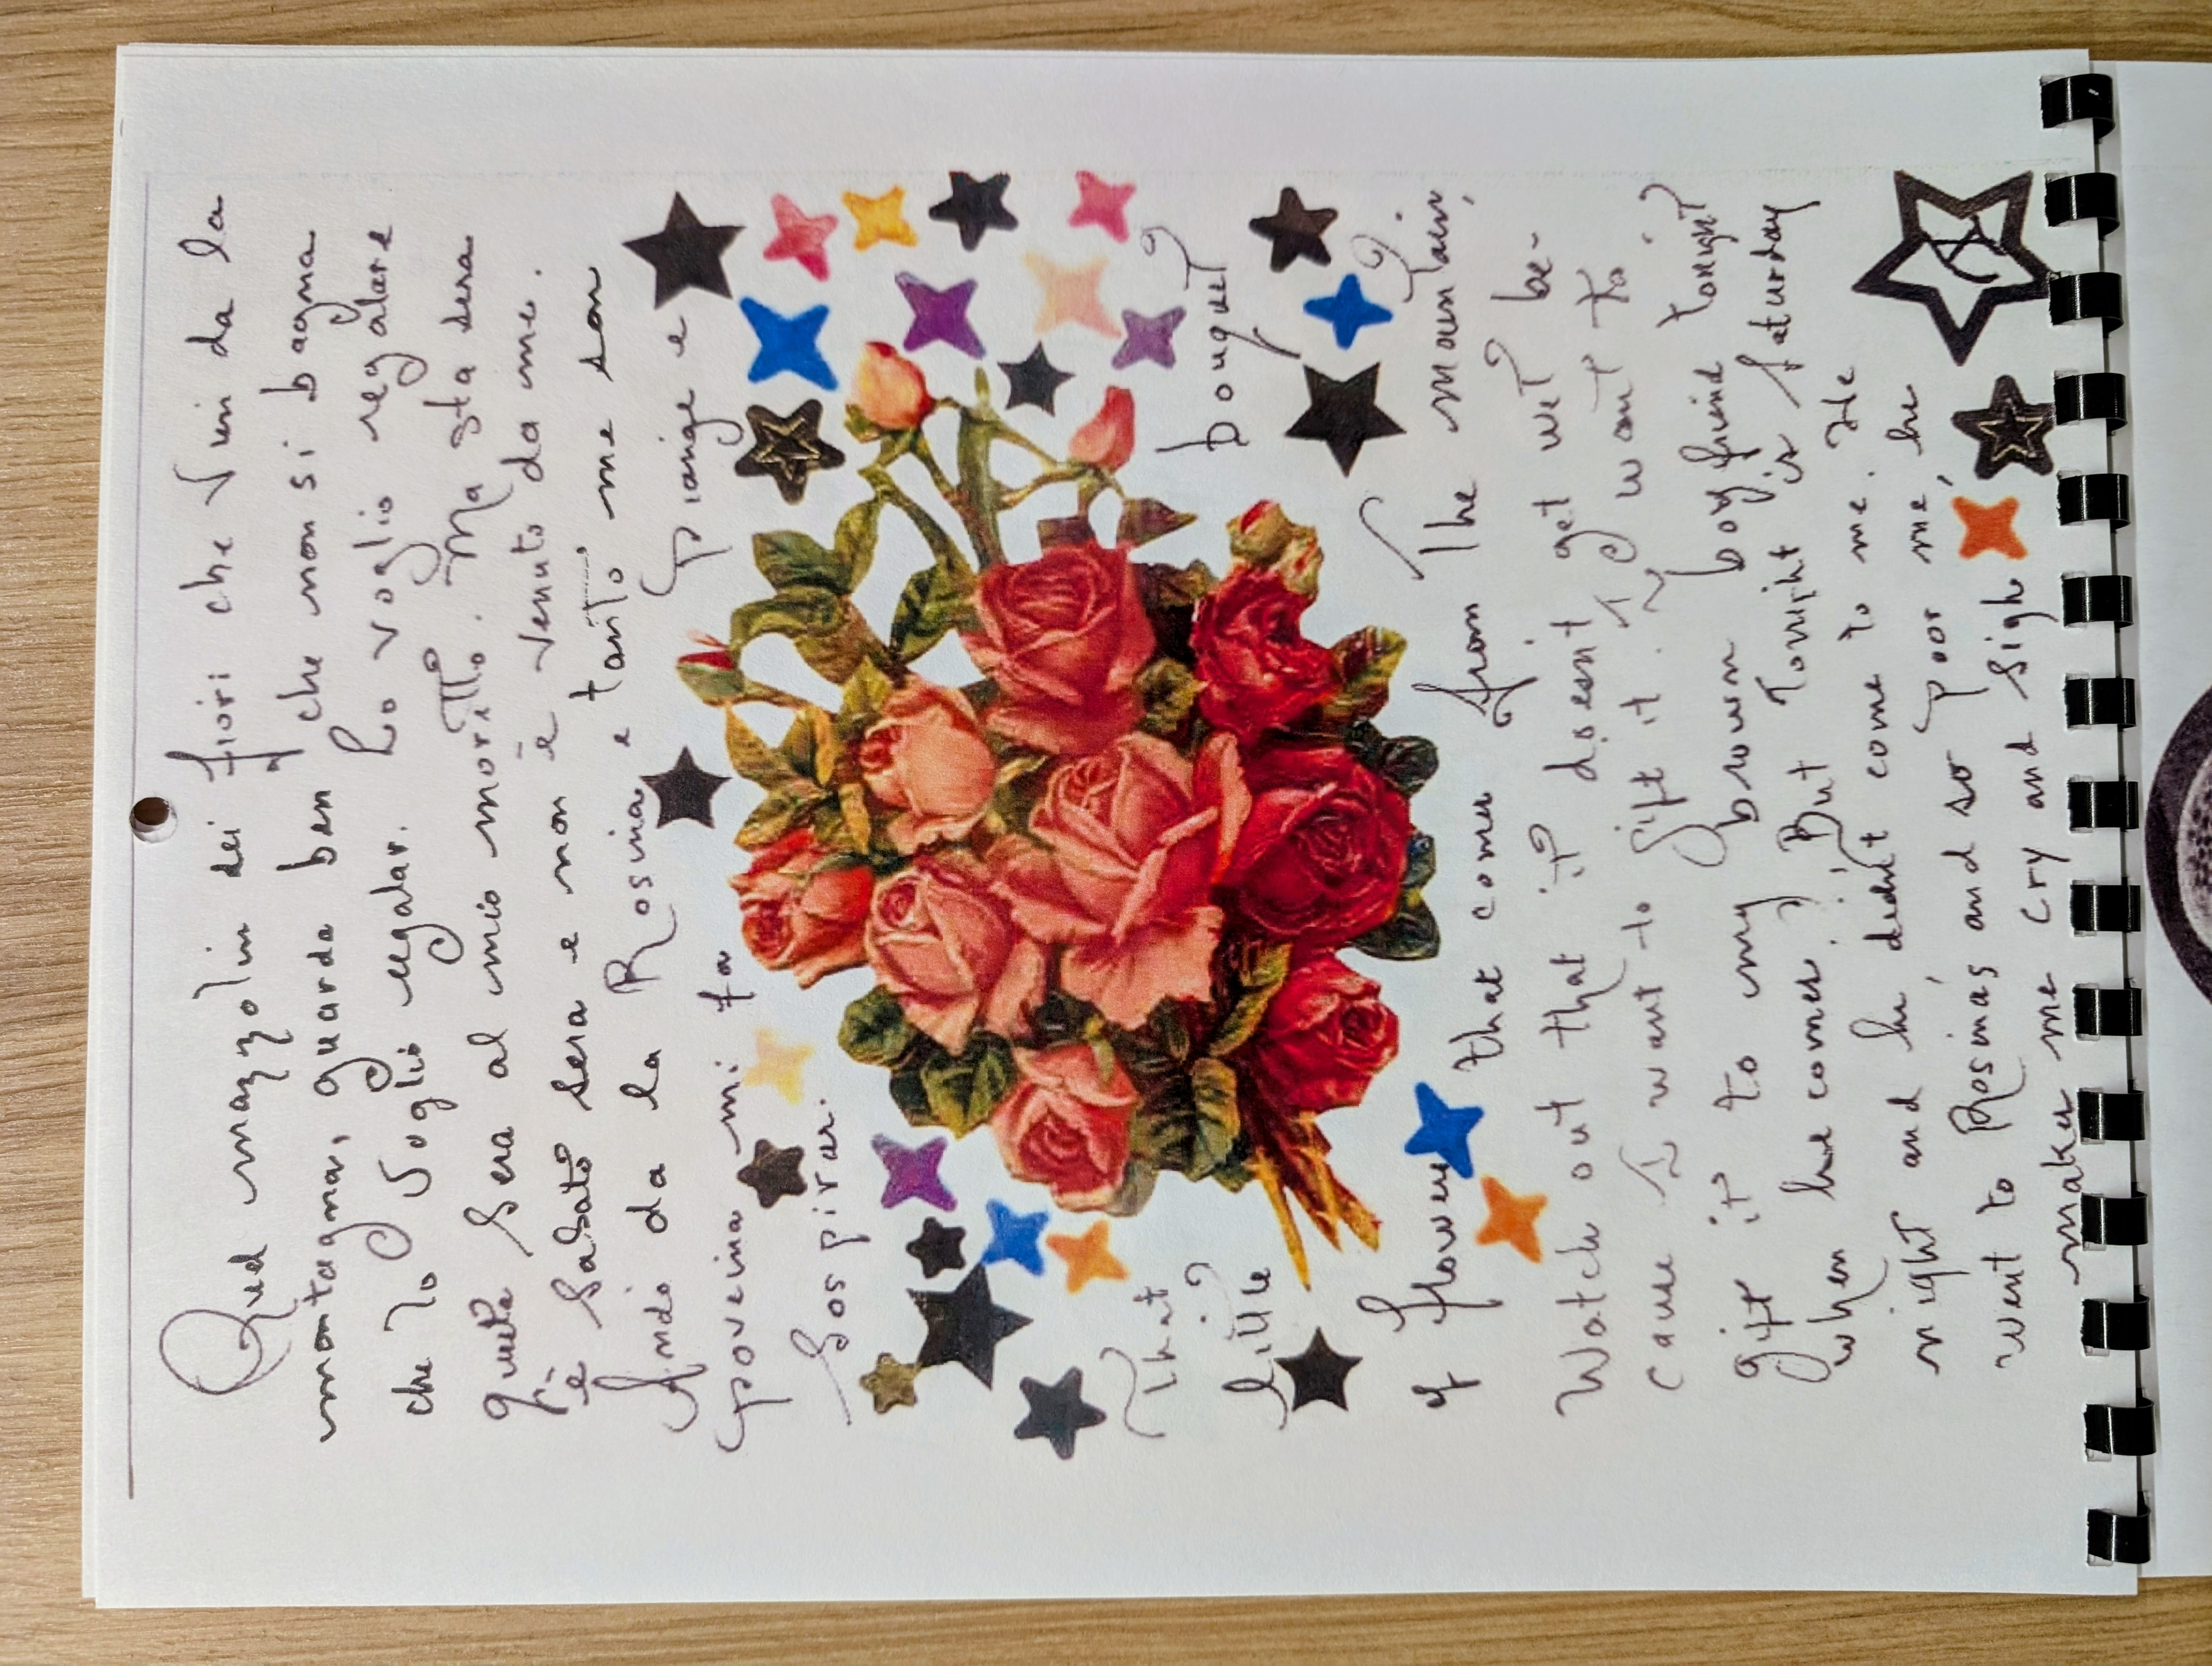 Quel mazzolin dei fiori che vien da la
montagna, guarda ben che non si bagna
che lo voglio regalar. Lo voglio regalare
questa sera al mio moritto. Ma sta sera
è sabato sera e non è venuto da me.
Andò da la Rosina e tanto me son
poverina mi fa piange e
sospirar.
That bouquet
little
of flower that comes from the mountain,
Watch out that it doesnt get wet be-
cause I want to gift it. I want to
gift it to my brown boyfriend tonight
when he comes! But tonight is saturday
night and he didnt come to me. He
went to Rosinas and so poor me, he
makes me cry and sigh